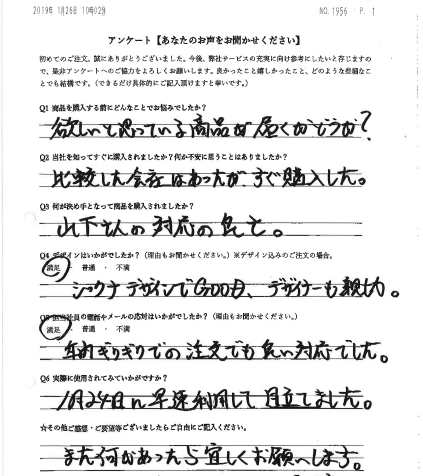 2019年 1月26日 10時02分
NO. 1956 P. 1
アンケート【あなたのお声をお聞かせください】
初めてのご注文、誠にありがとうございました。今後、弊社サービスの充実に向け参考にしたいと存じますの
で、是非アンケートへのご協力をよろしくお願いします。良かったこと嬉しかったこと、どのような些細なこ
とでも結構です。(できるだけ具体的にご記入頂けますと幸いです。)
Q1 商品を購入する前にどんなことでお悩みでしたか?
欲しいと思っている商品が届くかどうか?
Q2 当社を知ってすぐに購入されましたか?何か不安に思うことはありましたか?
比較した会社はあったが、すぐ購入した。
Q3 何が決め手となって商品を購入されましたか?
山下さんの対応の良さ。
Q4 デザインはいかがでしたか?(理由もお聞かせください。)※デザイン込みのご注文の場合。
満足 ・ 普通 ・ 不満
シックなデザインでGOOD、デザイナーも親切。
Q5 担当社員の電話やメールの応対はいかがでしたか?(理由もお聞かせください。)
満足 ・ 普通 ・ 不満
年内ぎりぎりでの注文でも良い対応でした。
Q6 実際に使用されてみていかがですか?
1月24日に早速利用して目立てました。
☆その他ご感想・ご要望等ございましたらご自由にご記入ください。
また何かあったら宜しくお願いします。